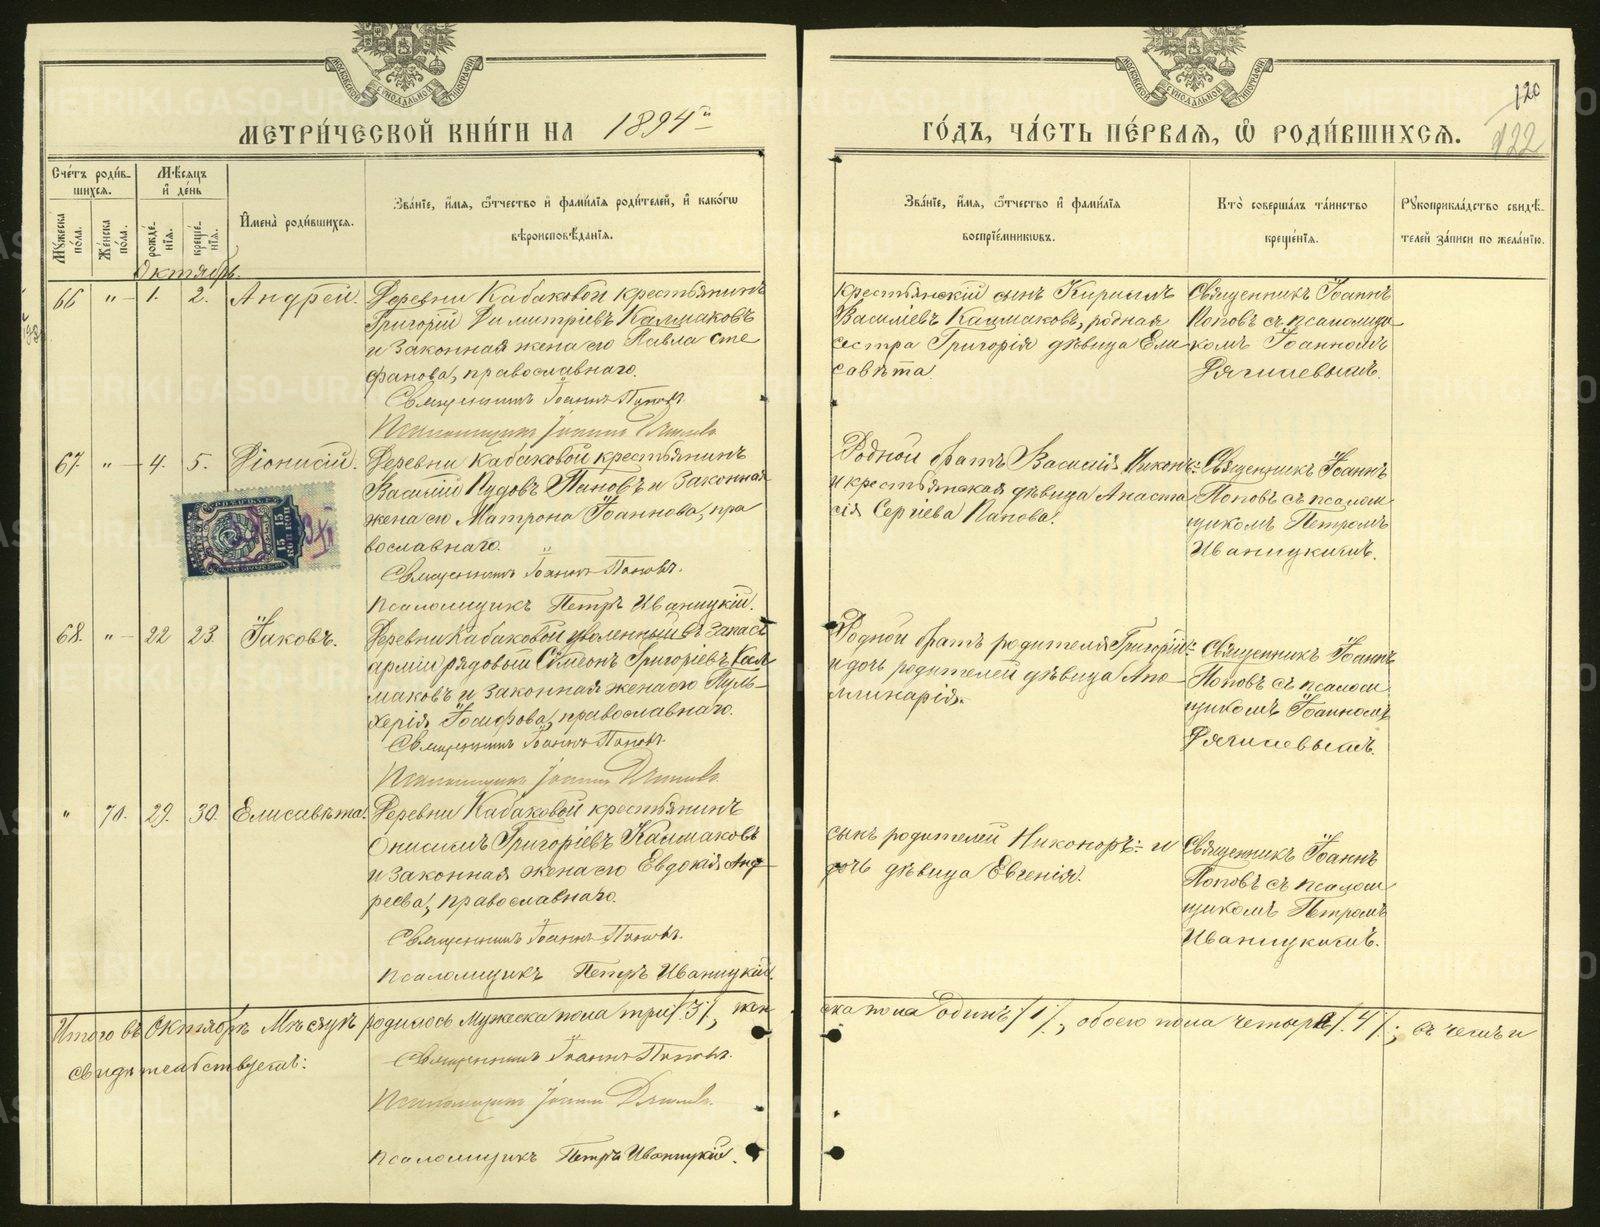 МЕТРИ́ЧЕСКОЙ КНИ́ГИ НА 1894й
ГО́ДЪ, ЧА́СТЬ ПЕ́РВАѦ, Ѽ РОДИ́ВШИХСѦ.
120
122
Сче́тъ роди́в-
шихсѧ.
Мѣ́сѧцъ
и҆ де́нь
Мꙋ́жеска
по́ла.
Же́нска
по́ла.
рожде́-
нїѧ.
креще́-
нїѧ.
И҆мена̀ роди́вшихсѧ.
Зва́нїе, и҆́мѧ, ѻ҆́тчество и҆ фами́лїѧ роди́телей, и҆ како́гѡ
вѣроисповѣ́данїѧ.
Зва́нїе, и҆́мѧ, ѻ҆́тчество и҆ фами́лїѧ
воспрїе́мникѡвъ.
Кто̀ соверша́лъ та́инство
креще́нїѧ.
Рꙋкоприкла́дство свидѣ́-
телей за́писи по жела́нїю.
Октябрь.
66 " 1. 2. Андрей.
Деревни Кабаковой крестьянинъ
Григорій Димитріевъ Калмаковъ
и законная жена его Павла Сте
фанова, православнаго.
Священникъ Іоаннъ Поповъ
Псаломщикъ Іоаннъ Дягилевъ
крестьянскій сынъ Кириллъ
Василіевъ Калмаковъ, родная
сестра Григорія дѣвица Ели
савѣта.
Священникъ Іоаннъ
Поповъ съ псаломщи
комъ Іоанномъ
Дягилевымъ.
67. " 4. 5. Діонисій.
Деревни Кабаковой крестьянинъ
Василій Иудовъ Пановъ и законная
жена его Матрона Іоаннова, пра
вославнаго.
Священникъ Іоаннъ Поповъ.
Псаломщикъ Петръ Иваницкій.
Родной братъ Василія Никонъ:
и крестьянская дѣвица Анаста
сія Сергіева Панова.
Священникъ Іоаннъ
Поповъ съ псалом
щикомъ Петромъ
Иваницкимъ.
15 15
КОП КОП
68. " 22 23. Іаковъ.
Деревни Кабаковой уволенный въ запасъ
арміи рядовый Сѵмеонъ Григоріевъ Кал
маковъ и законная жена его Пуль-
херія Іосифова, православнаго.
Священникъ Іоаннъ Поповъ
Псаломщикъ Іоаннъ Дягилевъ
Родной братъ родителя Григорій:
и дочь родителей дѣвица Апо-
ллинарія.
Священникъ Іоаннъ
Поповъ съ псалом
щикомъ Іоанномъ
Дягилевымъ.
" 70. 29. 30. Елисавѣта.
Деревни Кабаковой крестьянинъ
Онисимъ Григоріевъ Калмаковъ
и законная жена его Евдокія Анд
реева, православнаго.
Священникъ Іоаннъ Поповъ.
Псаломщикъ Петръ Иваницкій.
сынъ родителей Никоноръ: и
дочь дѣвица Евгенія.
Священникъ Іоаннъ
Поповъ съ псалом
щикомъ Петромъ
Иваницкимъ.
Итого въ Октябрѣ Мѣсяцѣ родилось Мужеска пола три /3/, жен
ска пола один /1/, обоего пола четыре /4/; въ чемъ и
свидѣтельствуемъ:
Священникъ Іоаннъ Поповъ.
Псаломщикъ Іоаннъ Дягилевъ.
Псаломщикъ Петръ Иваницкій.
METRIKI.GASO-URAL.RU